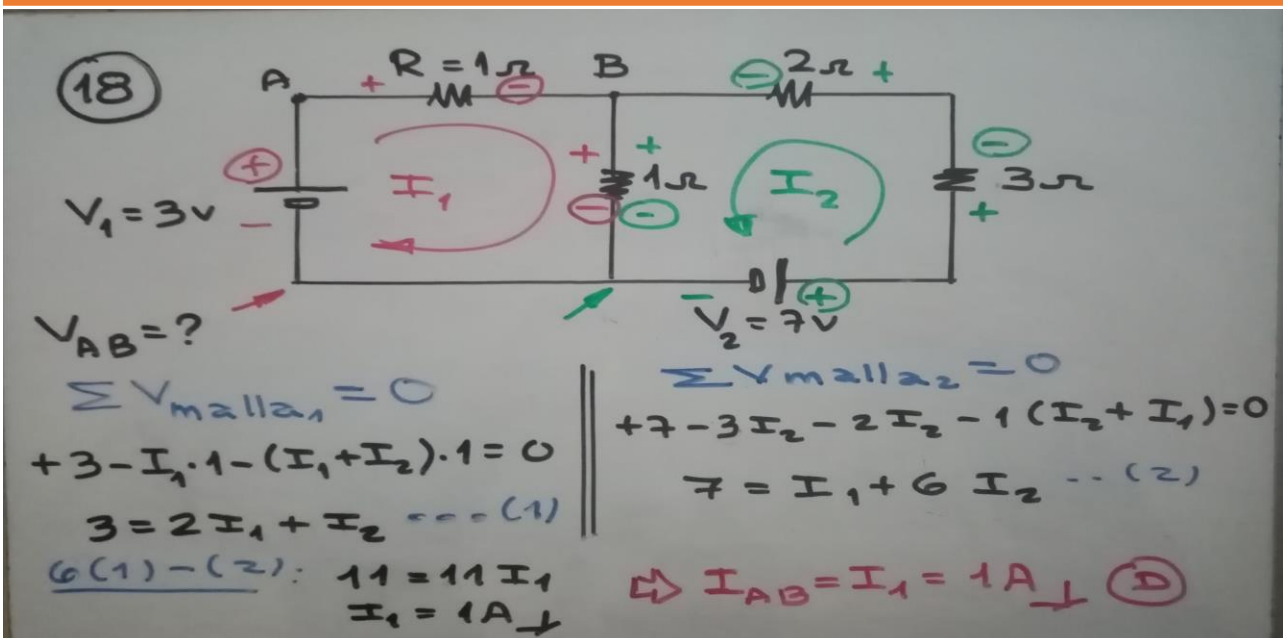 18
A + R = 1Ω - B - 2Ω +
+ + + -
V₁ = 3v - I₁ - - 1Ω I₂ 3Ω
+
- +
V_AB = ? V₂ = 7V
Σ V malla₁ = 0
+3 - I₁·1 - (I₁+I₂)·1 = 0
3 = 2I₁ + I₂ ---(1)
6(1) - (2): 11 = 11 I₁
I₁ = 1A
Σ V malla₂ = 0
+7 - 3I₂ - 2I₂ - 1(I₂+I₁)=0
7 = I₁ + 6 I₂ --(2)
⇨ I_AB = I₁ = 1A D